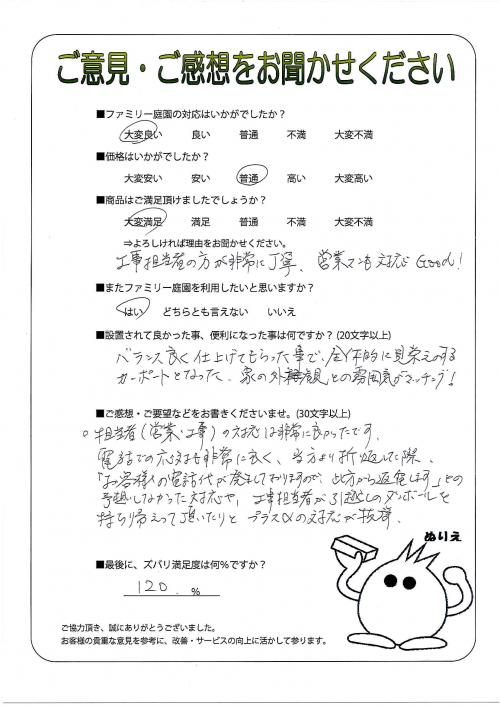 ご意見・ご感想をお聞かせください
■ファミリー庭園の対応はいかがでしたか？
大変良い 良い 普通 不満 大変不満
■価格はいかがでしたか？
大変安い 安い 普通 高い 大変高い
■商品はご満足頂けましたでしょうか？
大変満足 満足 普通 不満 大変不満
⇒よろしければ理由をお聞かせください。
工事担当者の方が非常に丁寧、営業マンも対応 Good!
■またファミリー庭園を利用したいと思いますか？
はい どちらとも言えない いいえ
■設置されて良かった事、便利になった事は何ですか？(20文字以上)
バランス良く仕上げてもらった事で、全体的に見栄えのする
カーポートとなった、家の外観との雰囲気がマッチング!
■ご感想・ご要望などをお書きくださいませ。(30文字以上)
○担当者(営業・工事)の対応は非常に良かったです。
電話での応対も非常に良く、当方より折返した際、
「お客様の電話代が発生しておりますので、此方から返電します」との
予想しなかった対応や、工事担当者が引越しのダンボールを
持ち帰えって頂いたりとプラスαの対応が抜群。
ぬりえ
■最後に、ズバリ満足度は何％ですか？
120.％
ご協力頂き、誠にありがとうございました。
お客様の貴重な意見を参考に、改善・サービスの向上に活かして参ります。